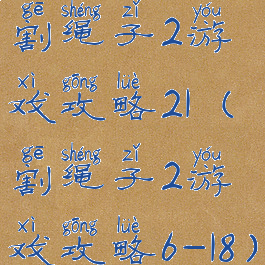 gē shéng zǐ yóu
割绳子2游
xì gōng luè
戏攻略21（
gē shéng zǐ yóu
割绳子2游
xì gōng luè
戏攻略6-18）